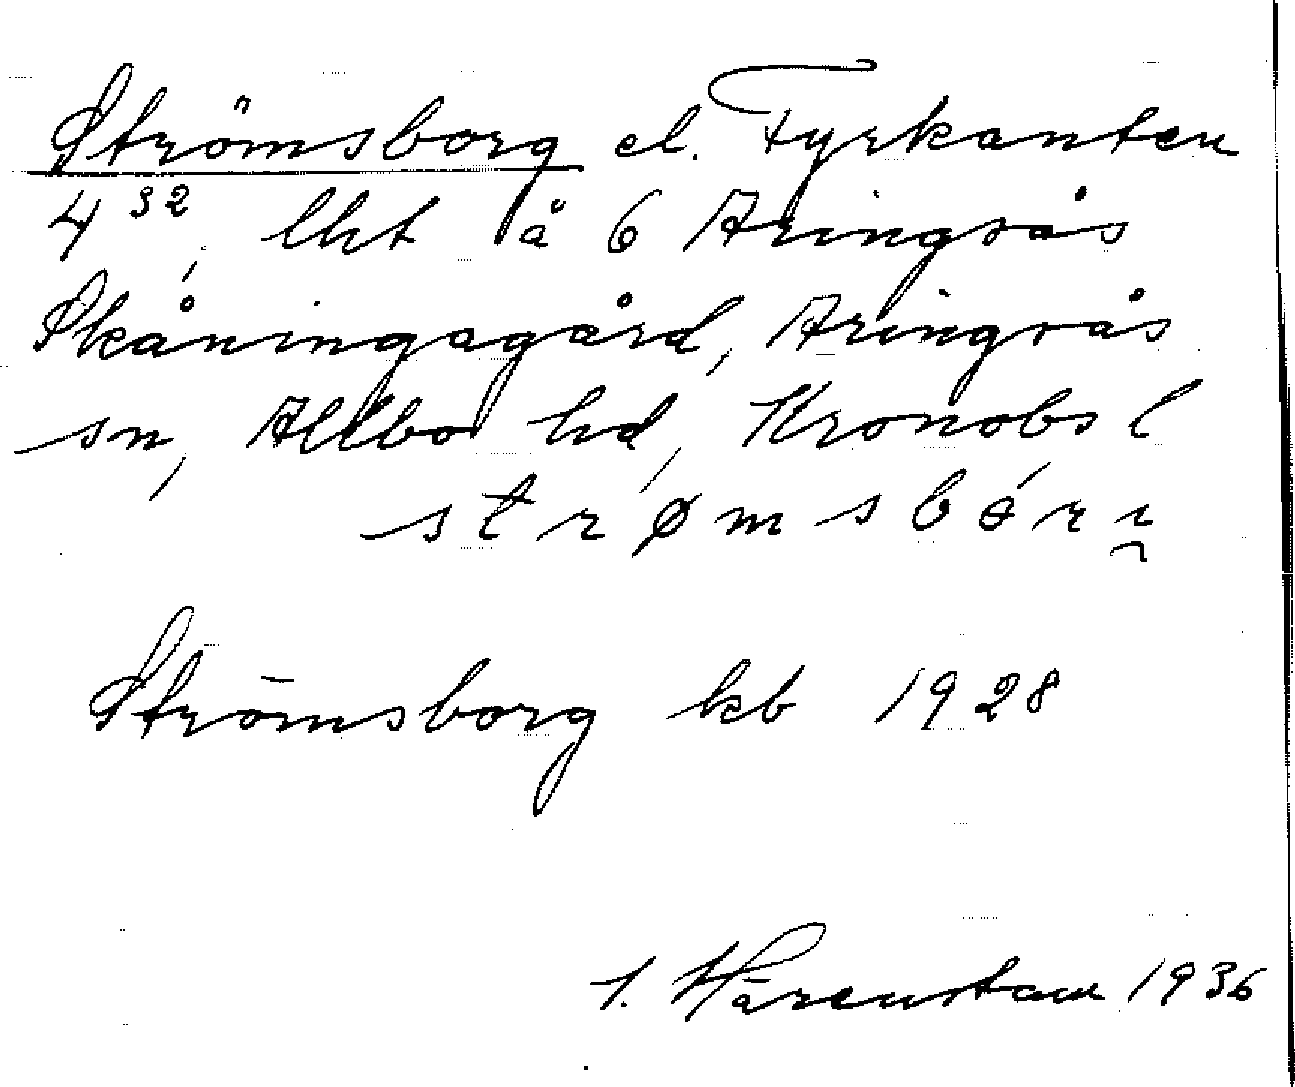 Strömsborg el. Fyrkanten
4³², lht å 6 Aringsås
Skåningagård, Aringsås
sn, Allbo hd, Kronobs l
strømsbór
Strömsborg kb 1928
Härenstam 1936